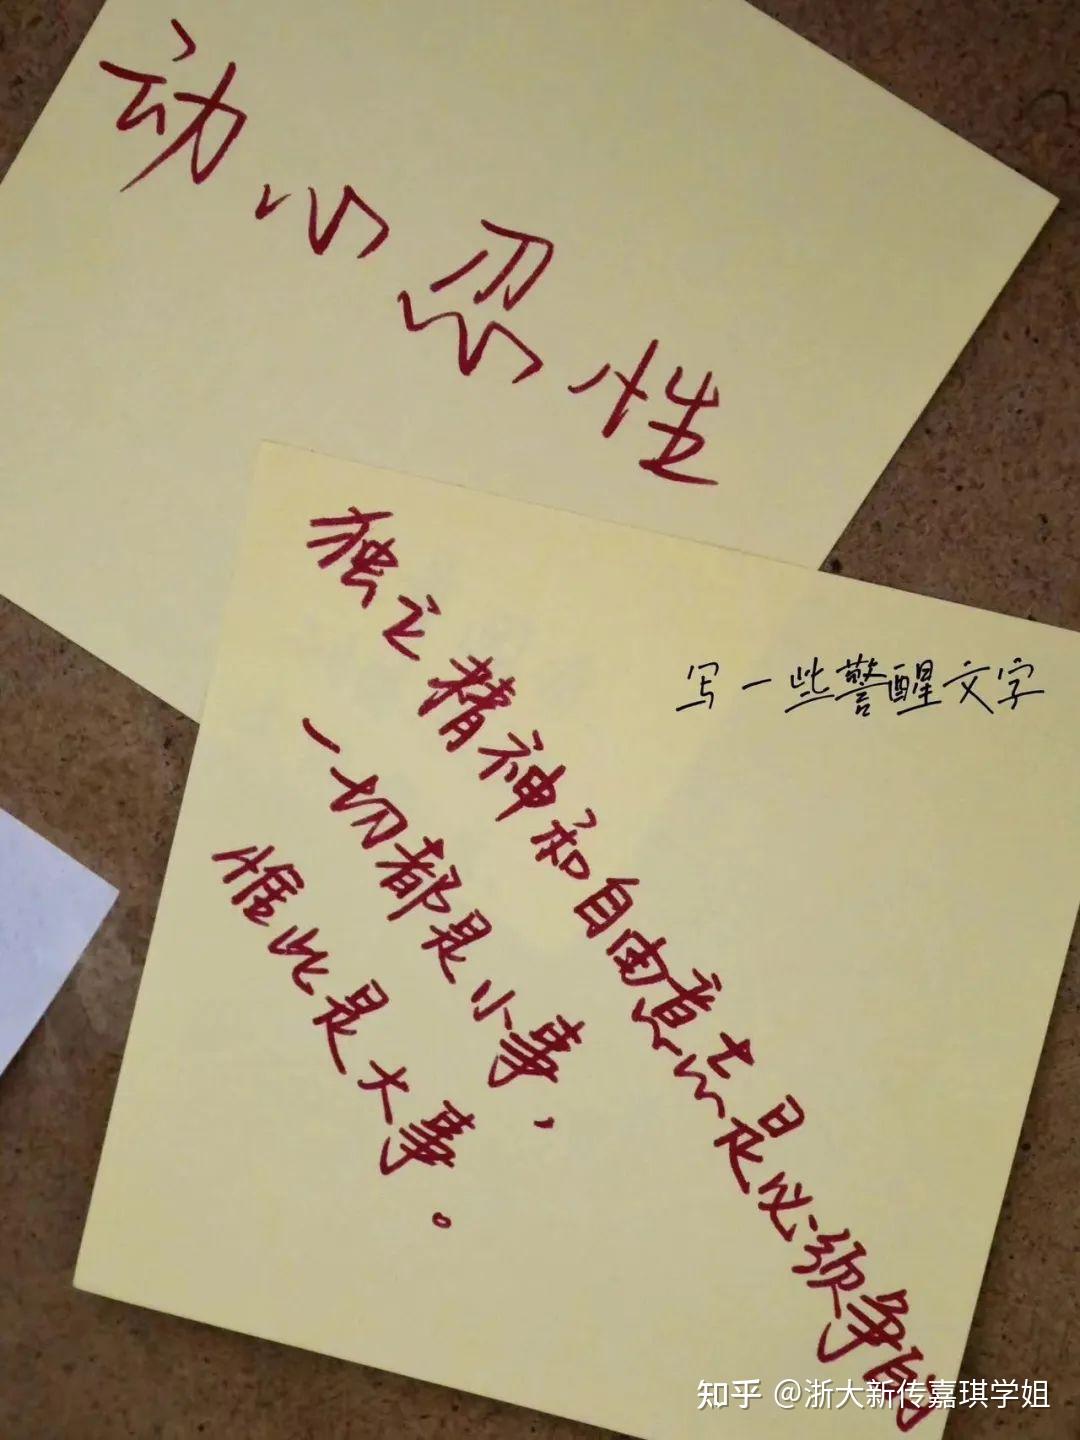 动心忍性
写一些警醒文字
独立精神和自由意志是必须争的
一切都是小事，
惟此是大事。
知乎 @浙大新传嘉琪学姐